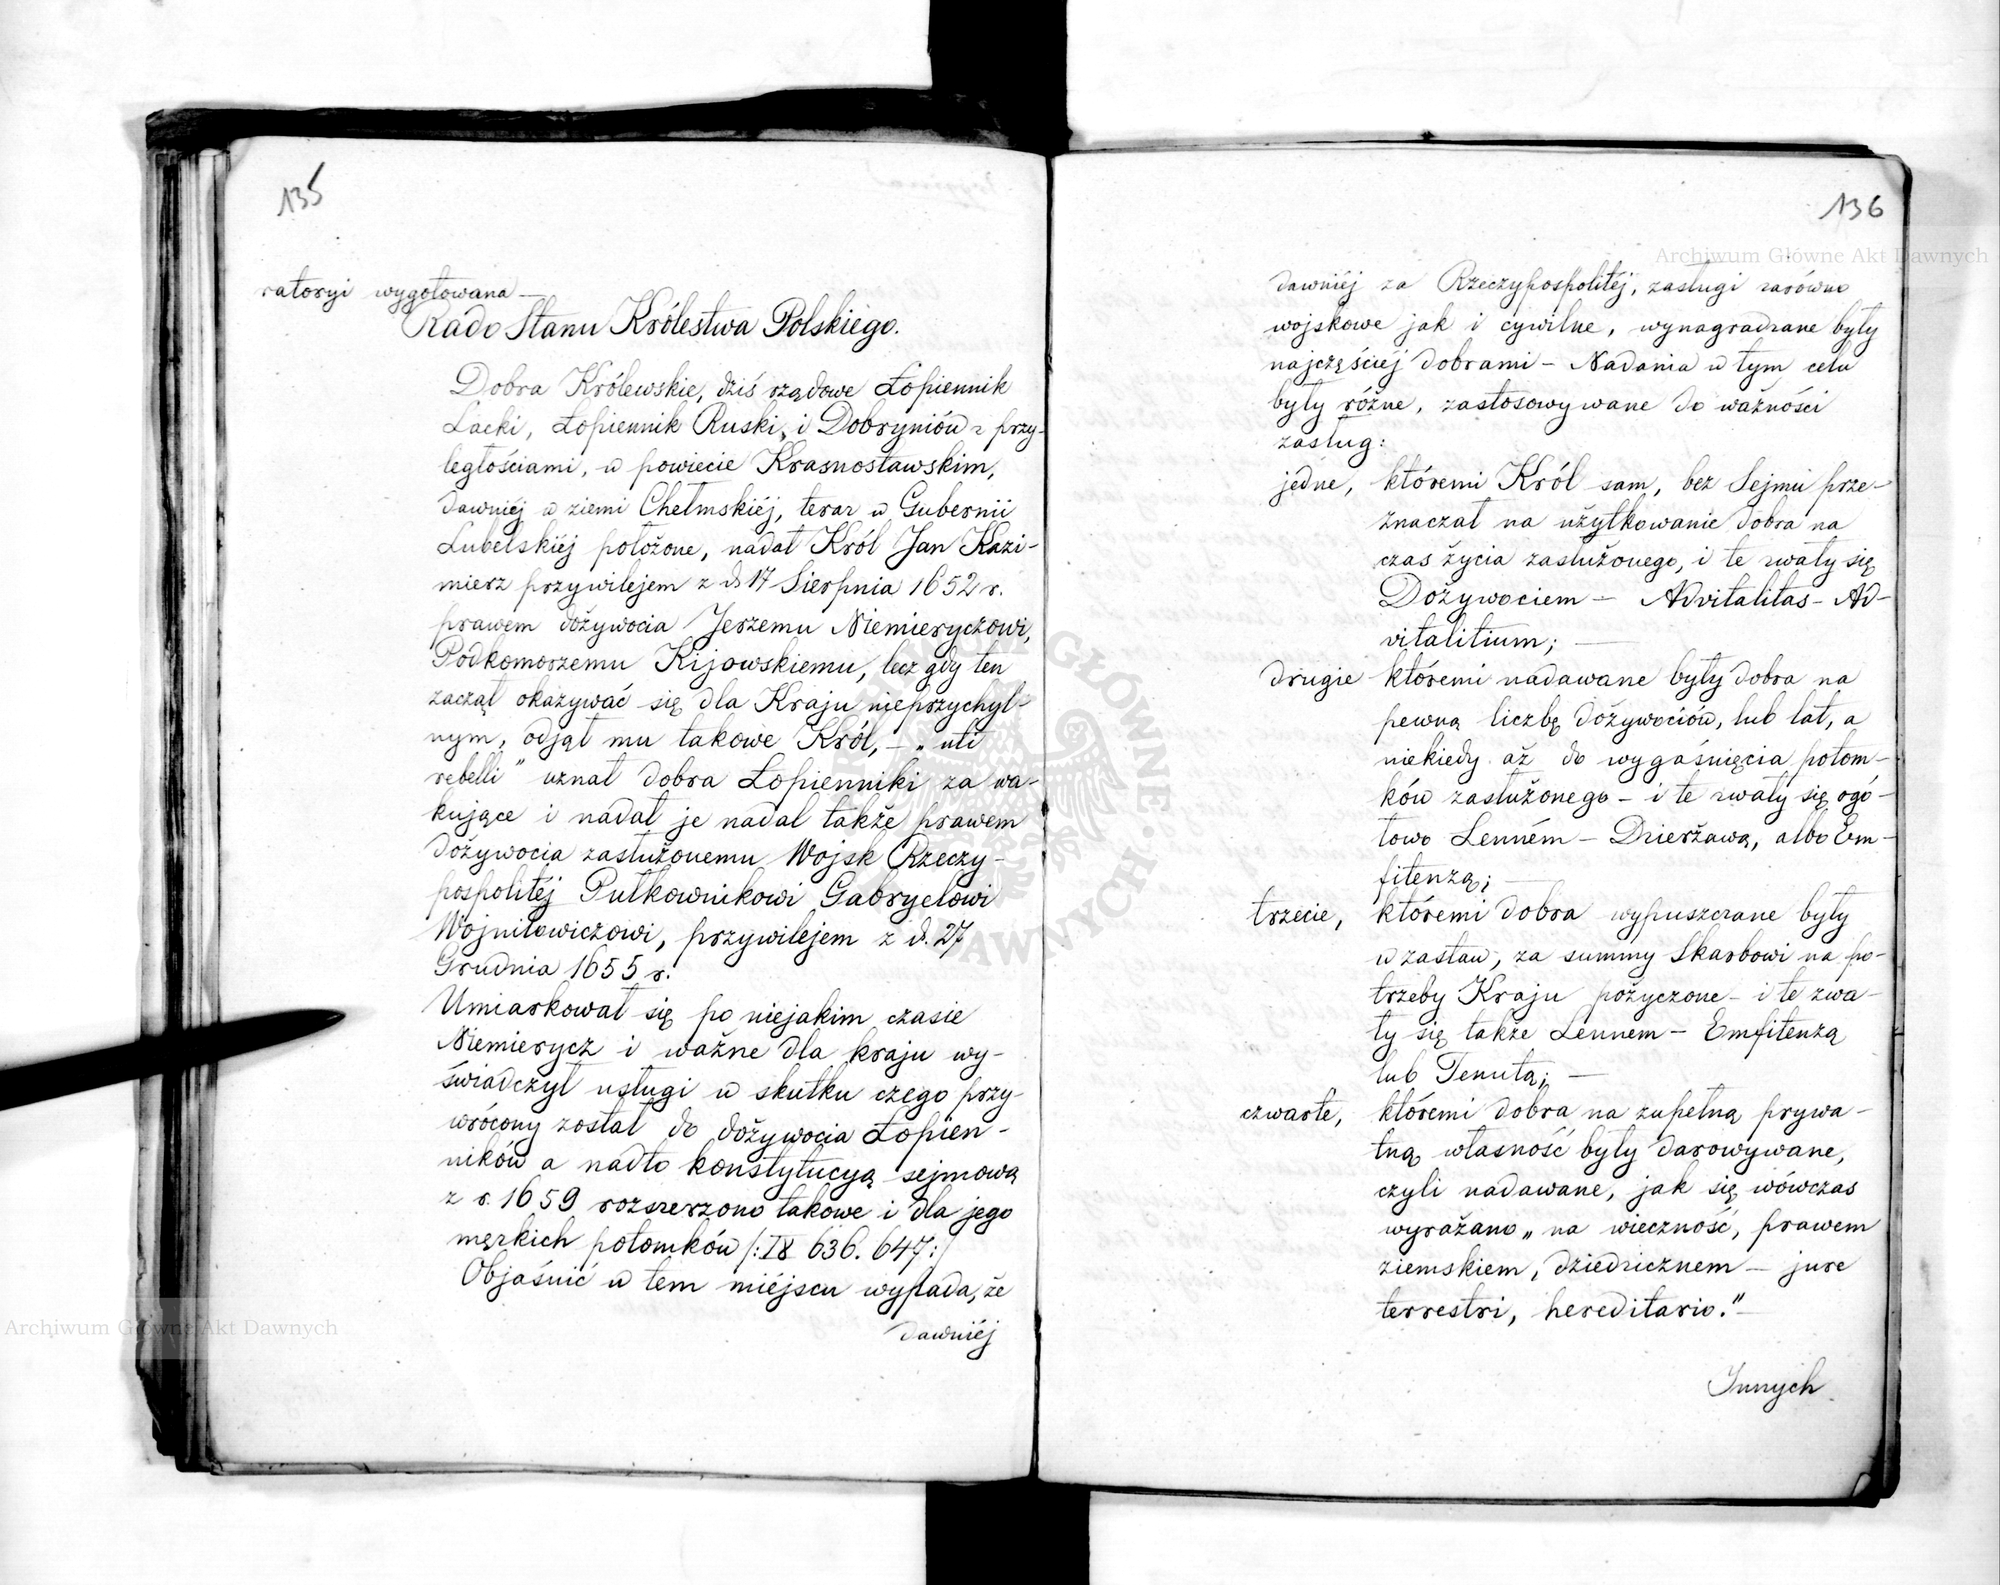 135
ratoryi wygotowana —
Rado Stanu Królestwa Polskiego.
Dobra Królewskie, dziś rządowe Łopiennik
Lacki, Łopiennik Ruski, i Dobryniów z przy-
ległościami, w powiecie Krasnostawskim,
dawniéj w ziemi Chełmskiéj, teraz w Gubernii
Lubelskiéj położone, nadał Król Jan Kazi-
mierz przywilejem z d. 17 Sierpnia 1652 r.
prawem dożywocia Jerzemu Niemieryczowi,
Podkomorzemu Kijowskiemu, lecz gdy ten
zaczął okazywać się dla Kraju nieprzychyl-
nym, odjął mu takowe Król, — „uti
rebelli” uznał dobra Łopienniki za wa-
kujące i nadał je nadal także prawem
dożywocia zasłużonemu Wojsk Rzeczy-
pospolitéj Pułkownikowi Gabryelowi
Wojniłowiczowi, przywilejem z d. 27
Grudnia 1655 r.
Umiarkował się po niejakim czasie
Niemierycz i ważne dla kraju wy-
świadczył usługi w skutku czego przy-
wrócony został do dożywocia Łopien-
ników a nadto konstytucyą sejmową
z r. 1659 rozszerzono takowe i dla jego
męzkich potomków /: IX 636. 647 :/
Objaśnić w tem miéjscu wypada, że
dawniéj
136
dawniéj za Rzeczypospolitéj, zasługi zarówno
wojskowe jak i cywilne, wynagradzane były
najczęściéj dobrami — Nadania w tym celu
były różne, zastosowywane do ważności
zasług:
jedne, któremi Król sam, bez Sejmu prze-
znaczał na użytkowanie dobra na
czas życia zasłużonego, i te zwały się
Dożywociem — Advitalitas — Ad-
vitalitium; —
drugie któremi nadawane były dobra na
pewną liczbę dożywociów, lub lat, a
niekiedy aż do wygaśnięcia potom-
ków zasłużonego — i te zwały się ogó-
łowo Lenném — Dzierżawą, albo Em-
fitenzą; —
trzecie, któremi dobra wypuszczane były
w zastaw, za summy Skarbowi na po-
trzeby Kraju pożyczone — i te zwa-
ły się także Lennem — Emfitenzą
lub Tenutą; —
czwarte, któremi dobra na zupełną prywa-
tną własność były darowywane,
czyli nadawane, jak się wówczas
wyrażano „na wieczność, prawem
ziemskiem, dziedzicznem — jure
terrestri, hereditario.” —
Innych
Archiwum Główne Akt Dawnych
Archiwum Główne Akt Dawnych